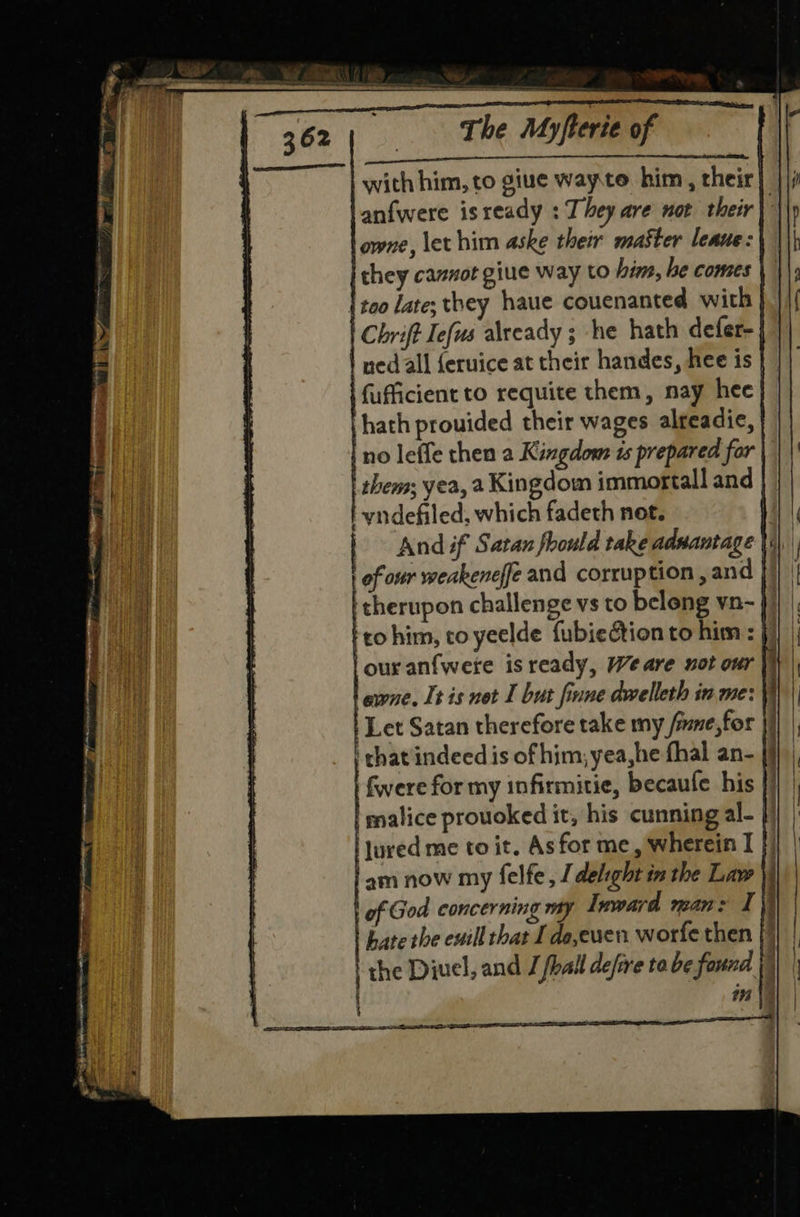 362
The Myſterie of
with him, to giue way to him, their
anſwere is ready : They are not their
owne, let him aske their maſter leaue:
they cannot giue way to him, he comes
too late; they haue couenanted with
Chriſt Ieſus already ; he hath deſer-
ued all ſeruice at their handes, hee is
ſufficient to requite them, nay hee
hath prouided their wages alreadie,
no leſſe then a Kingdom is prepared for
them; yea, a Kingdom immortall and
vndefiled, which fadeth not.
And if Satan ſhould take aduantage
of our weakeneſſe and corruption, and
therupon challenge vs to belong vn-
to him, to yeelde ſubiection to him :
our anſwere is ready, We are not our
owne. It is not I but ſinne dwelleth in me:
Let Satan therefore take my ſinne, for
that indeed is of him; yea, he ſhal an-
ſwere for my infirmitie, becauſe his
malice prouoked it, his cunning al-
lured me to it. As for me, wherein I
am now my ſelfe, I delight in the Law
of God concerning my Inward man: I
hate the euill that I do, euen worſe then
the Diuel, and I ſhall deſire to be found
in